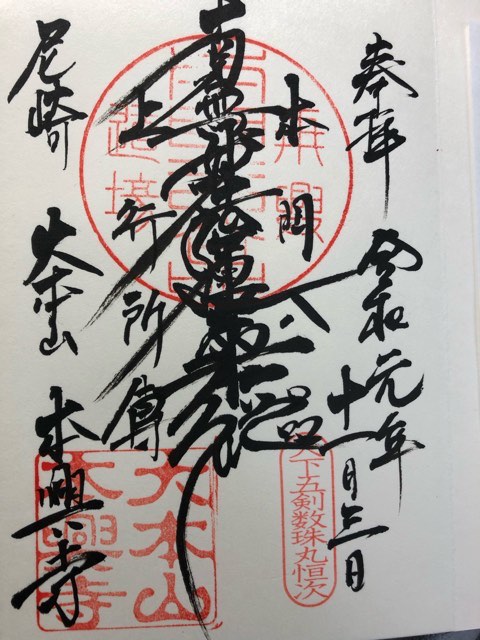 奉拝
令和元年
十一月三日
本門八品
南無妙法蓮華経
上行所傳
尼崎
大本山
本興寺
天下五剣数珠丸恒次
大本山
本興寺